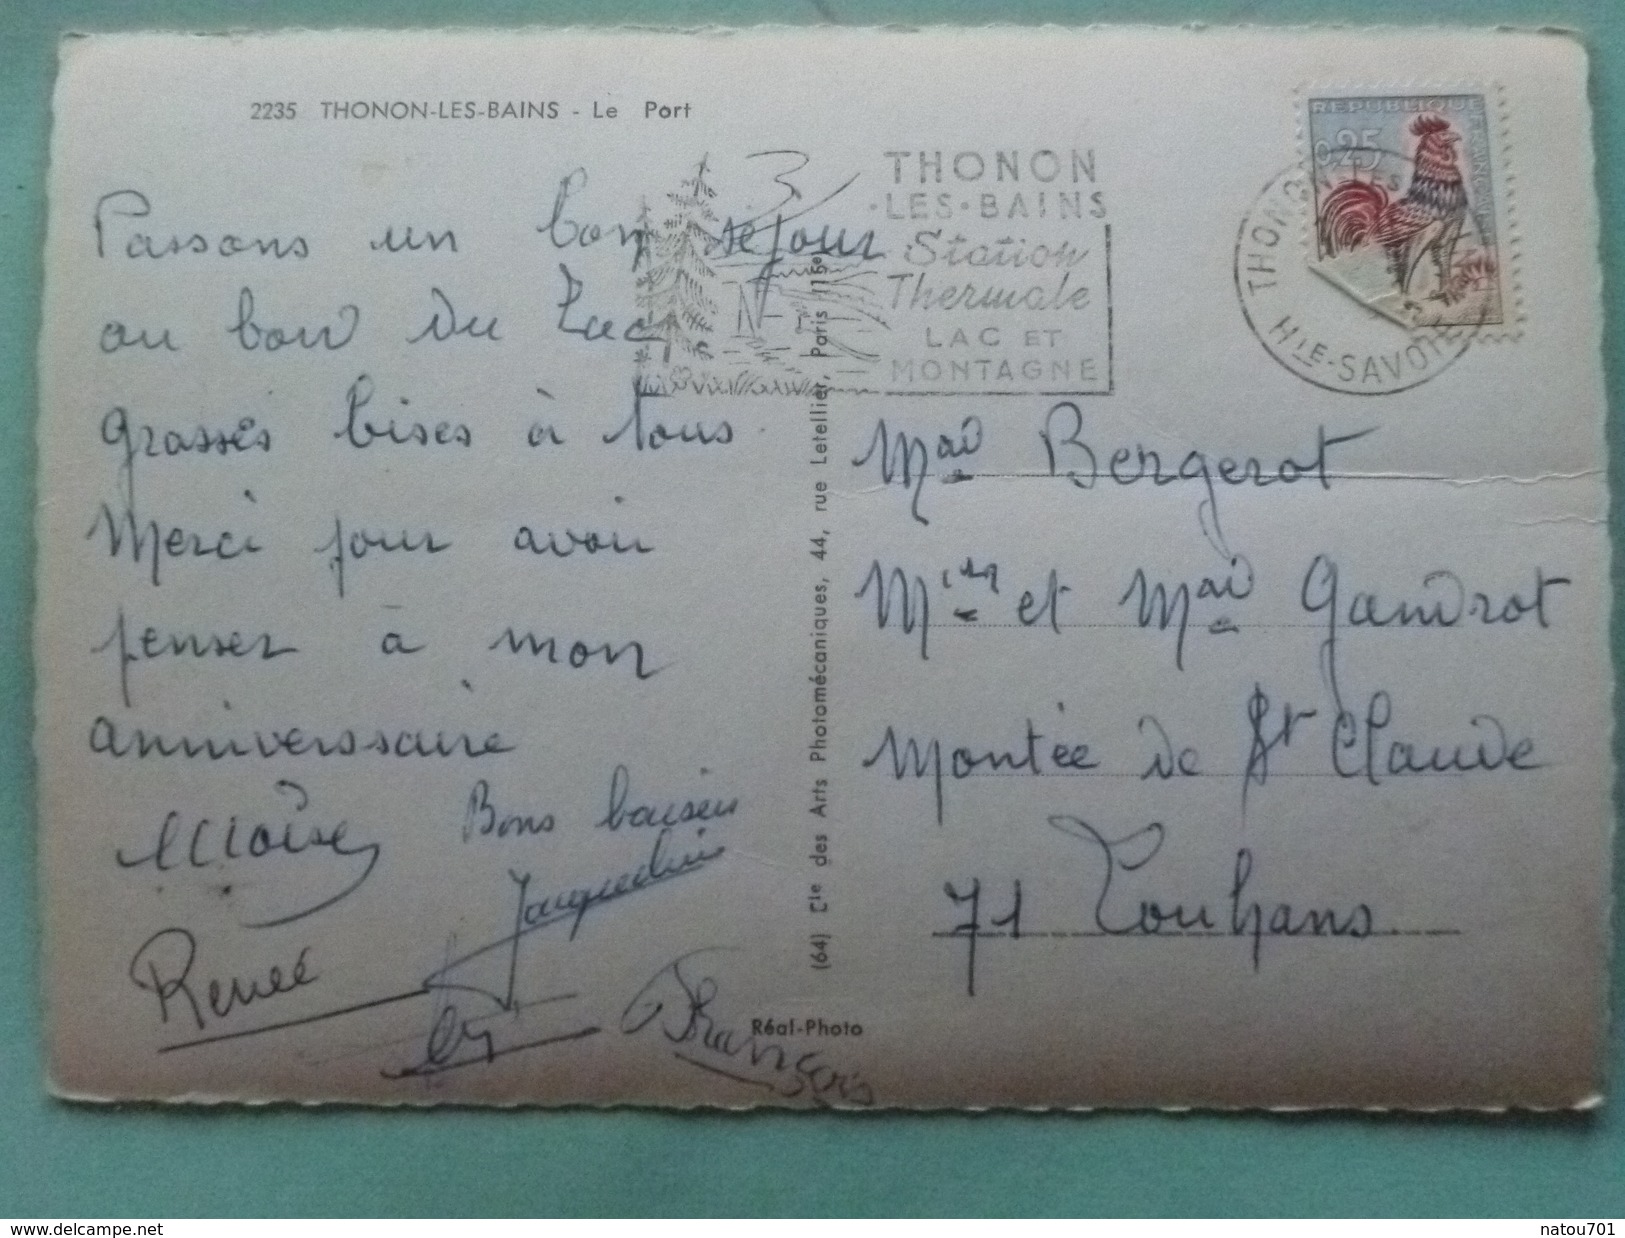 2235 THONON-LES-BAINS - Le Port
Passons un bon séjour
au bord du Lac
grosses bises à tous
Merci pour avoir
penser à mon
anniverssaire
Bons baisers
Jacqueline
Renée
François
THONON
·LES·BAINS
Station
Thermale
LAC ET
MONTAGNE
REPUBLIQUE FRANCAISE
0,25
THONON LES BAINS
HTE-SAVOIE
(64) Cie des Arts Photomécaniques, 44, rue Letellier, Paris 15e
Réal-Photo
Mad Bergerot
Mr et Mad Gandrot
Montée de St Claude
71 Louhans
www.delcampe.net
natou701